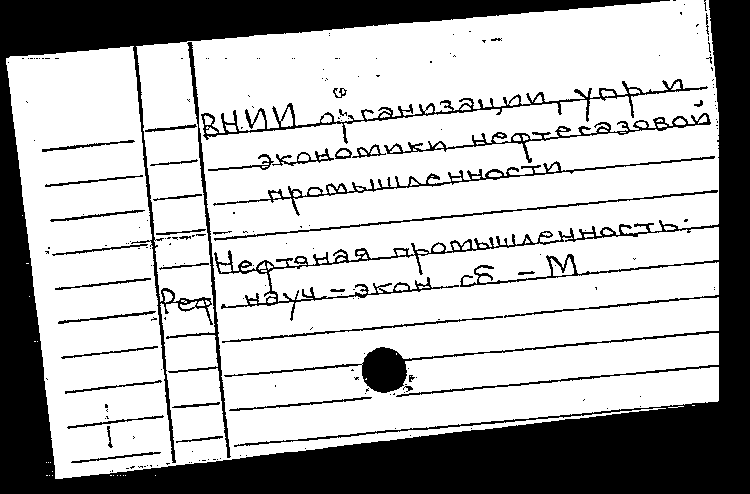 ВНИИ организации, упр. и
экономики нефтегазовой
промышленности.
Нефтяная промышленность:
Реф. науч.-экон сб. - М